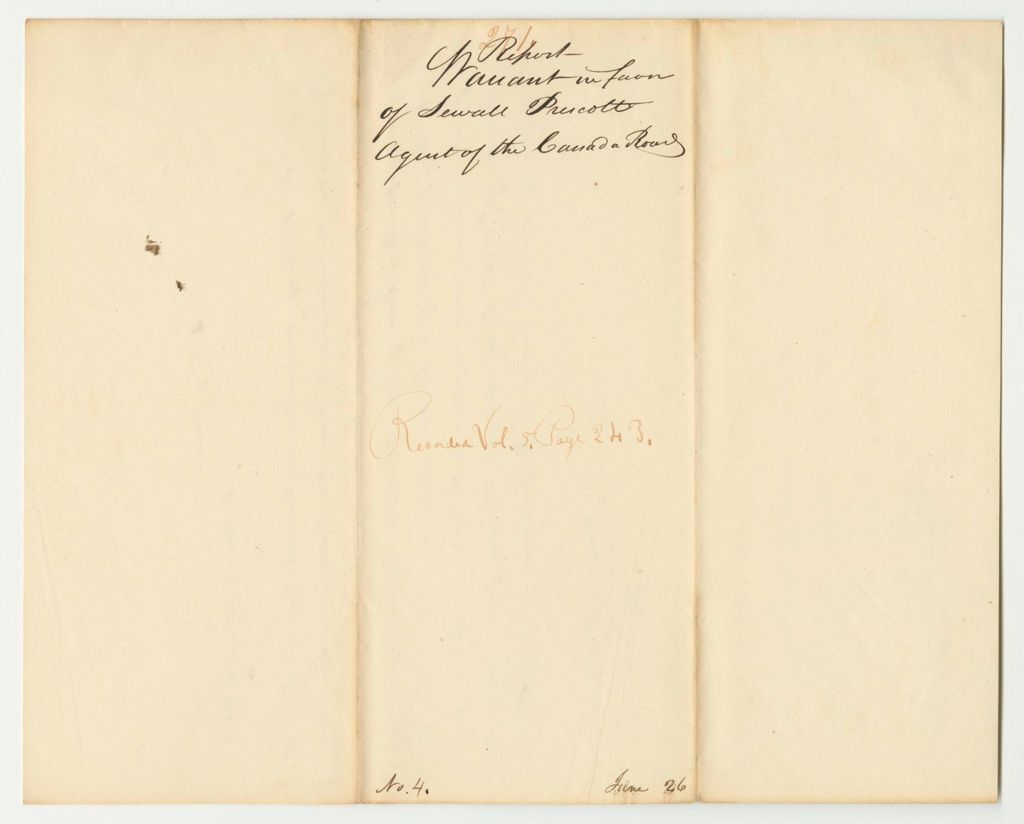 271
Report
Warrant in favor
of Sewall Prescott
Agent of the Canada Road
Recorded Vol. 5. Page 243.
No. 4. June 26